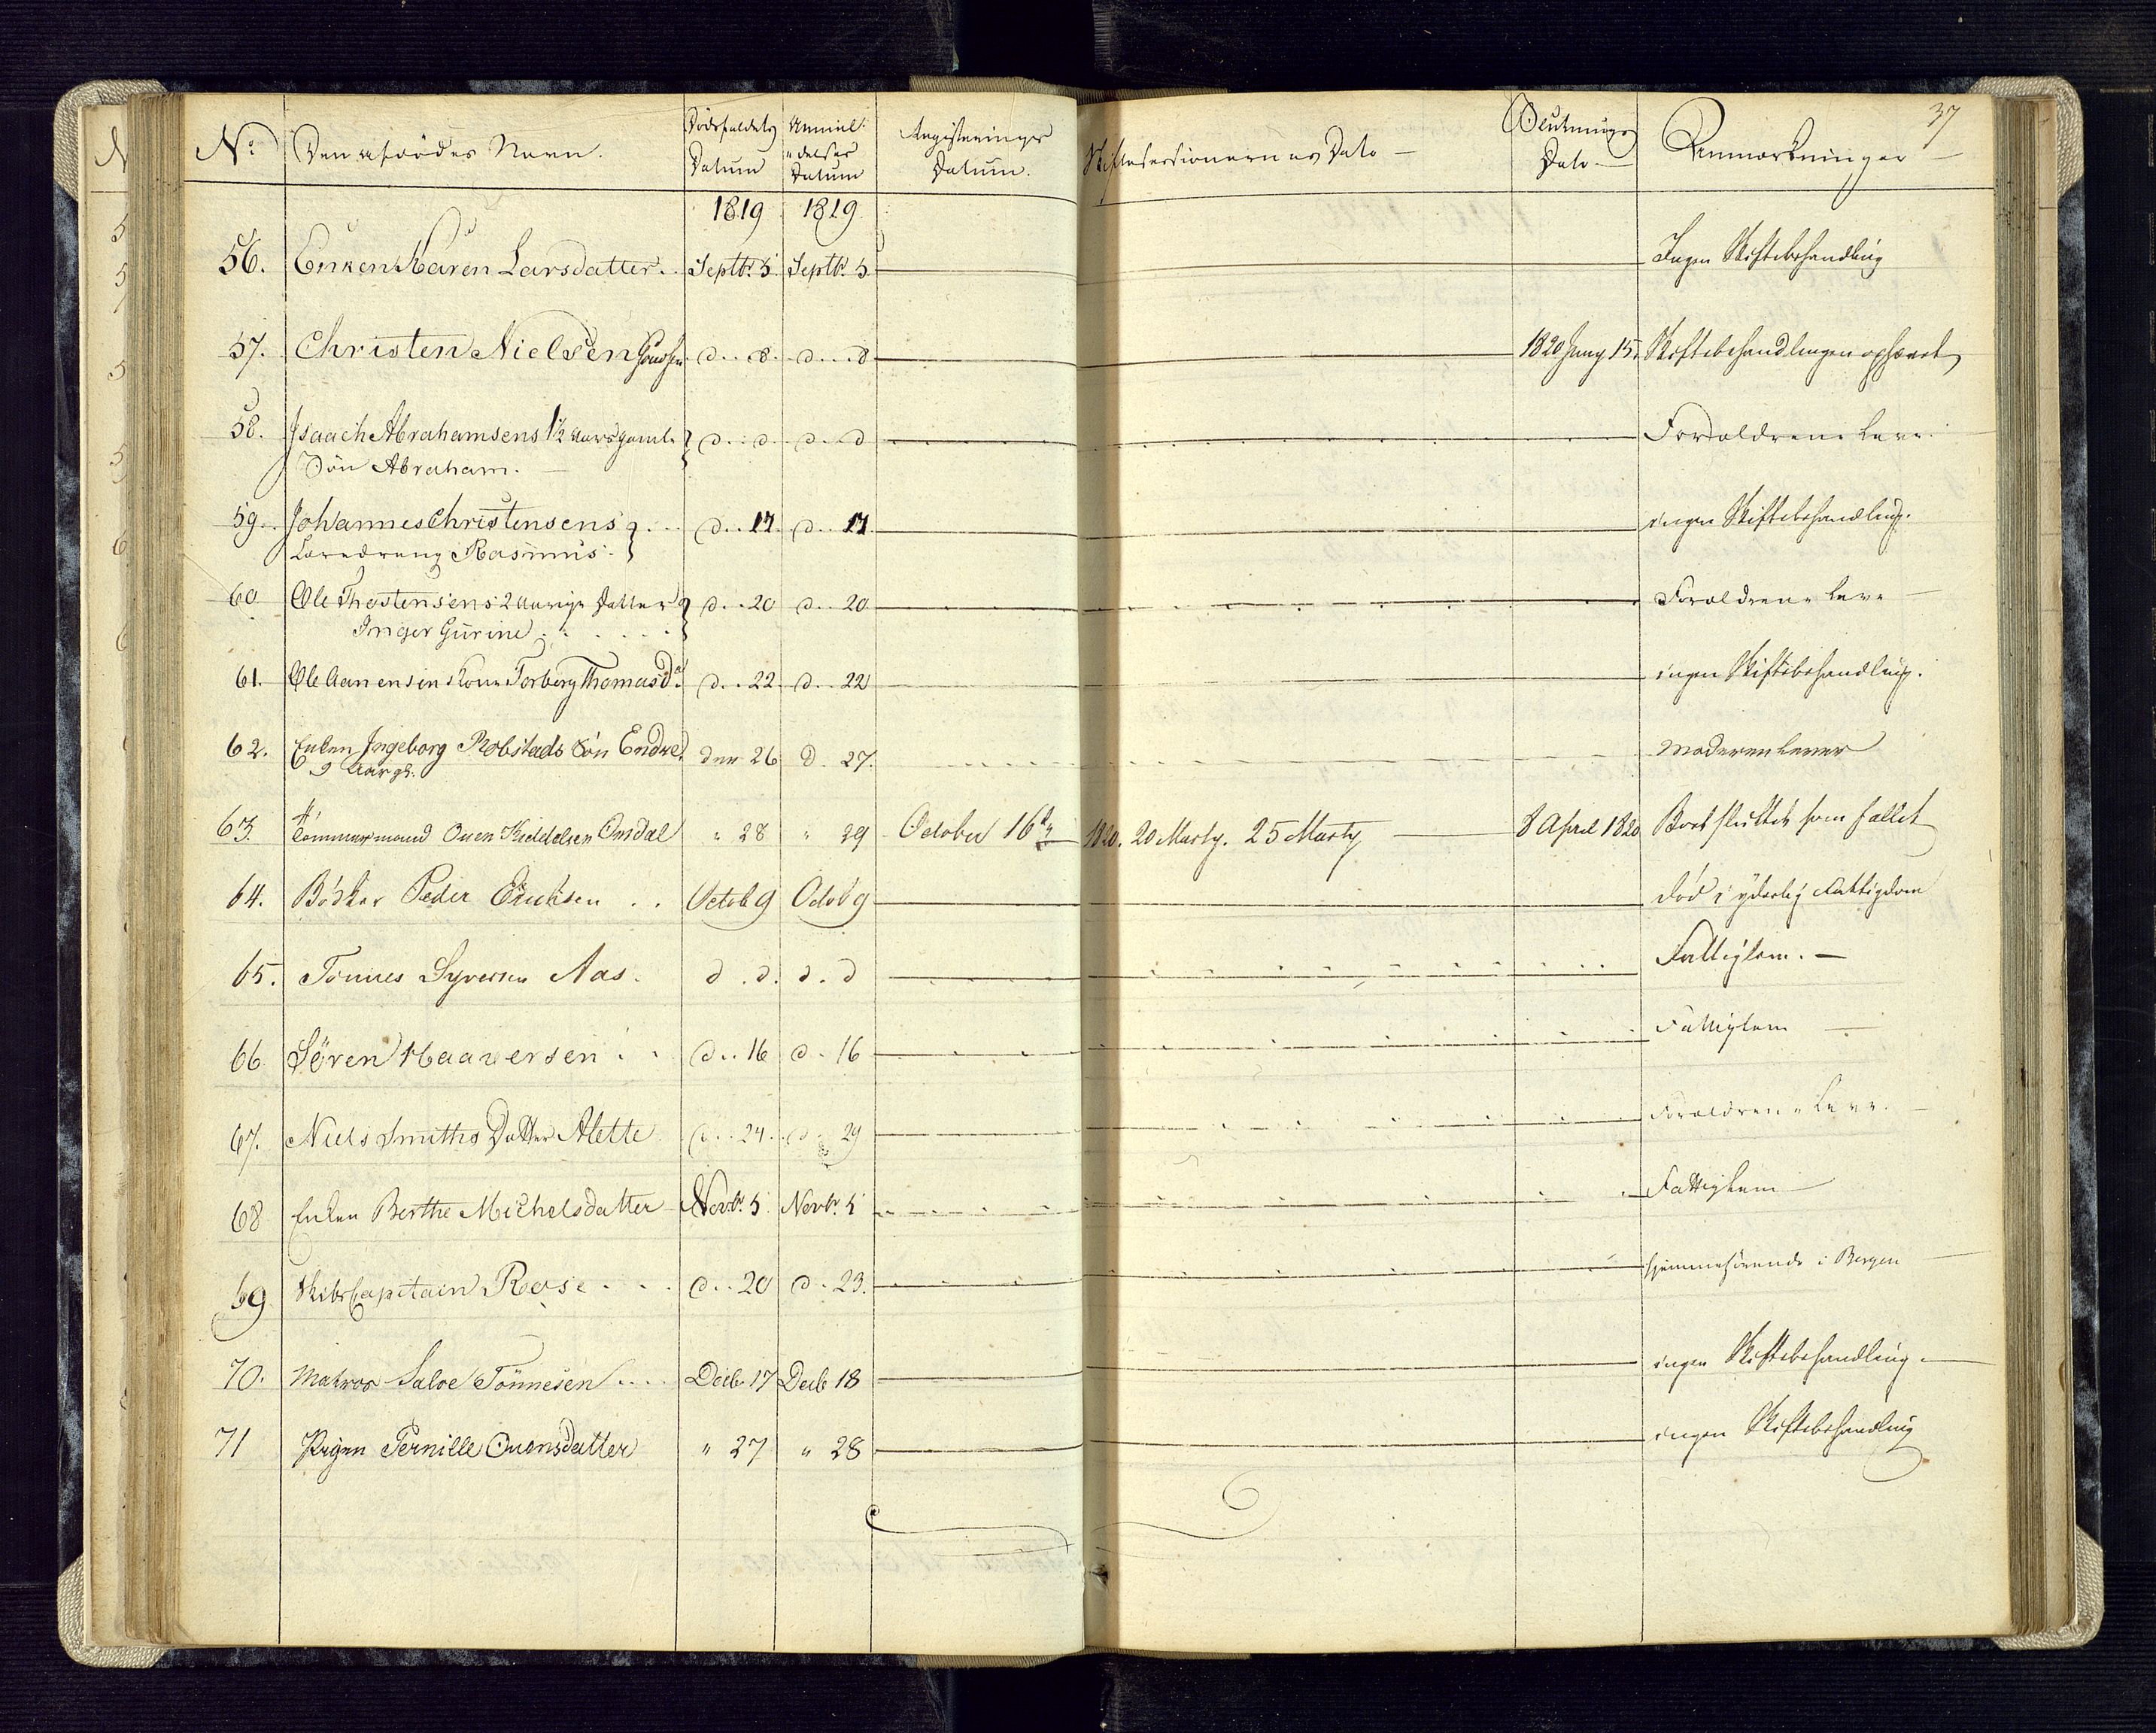 37
No Den afdødes Navn. Dødsfaldets Datum Anmeldelses Datum Registrerings Datum. Skiftesessionernes Dato — Slutnings Dato — Anmærkninger —
1819 1819
56. Enken Karen Larsdatter. Septbr. 5. Septbr. 5 Ingen Skiftebehandling
57. Christen Nielsen d. 8. d. 8 1820 Juny 15. Skiftebehandlingen ophævet
58. Isaach Abrahamsens 1½ Aars gamle d. d. d. d Forældrene leve.
Søn Abraham. —
59. Johannes Christensens d. 17. d. 17. ingen Skiftebehandling.
Læredreng Rasmus.
60 Ole Thostensens 2 Aarige Datter d. 20 d. 20 Forældrene leve —
Inger Gurine
61. Ole Aanensens Kone Torborg Thomasdr. d. 22. d. 22 ingen Skiftebehandling.
62. Enken Ingeborg Robstads Søn Endre den 26 d. 27. Moderen lever
9 Aar gl.
63. Tømmermand Onen Kieddelsen Omdal " 28 " 29 October 16de 1820. 20 Marty. 25 Marty 8 April 1820 Boet sluttet som fallit
64. Bødker Peder Erichsen . . Octob 9 Octob 9 død i yderlig Fattigdom
65. Tønnes Syversen Aas. d. d. d. d Fattiglem. —
66 Søren Haaversen d. 16 d. 16 Fattiglem —
67. Niels Smiths Datter Alette d. 24. d. 29 Forældrene leve. —
68 Enken Berthe Michelsdatter Novbr. 5 Novbr. 5 Fattiglem —
69 Skibs Capitain Rose d. 20 d. 23. hjemmehørende i Bergen —
70. Matros Salve Tönnesen Decb 17 Decb 18 ingen Skiftebehandling. —
71 Pigen Pernille Onensdatter " 27 " 28 ingen Skiftebehandling